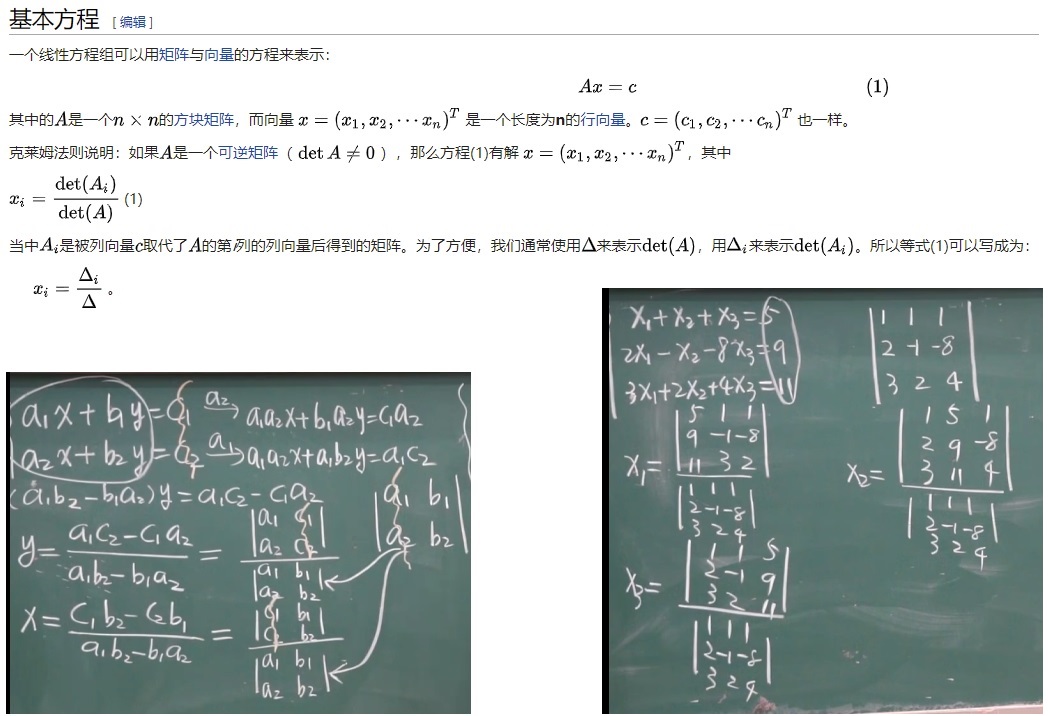 基本方程 [编辑]
一个线性方程组可以用矩阵与向量的方程来表示：
Ax = c (1)
其中的A是一个n × n的方块矩阵，而向量 x = (x₁, x₂, ⋯ xₙ)ᵀ 是一个长度为n的行向量。c = (c₁, c₂, ⋯ cₙ)ᵀ 也一样。
克莱姆法则说明：如果A是一个可逆矩阵（ det A ≠ 0 ），那么方程(1)有解 x = (x₁, x₂, ⋯ xₙ)ᵀ，其中
xᵢ = det(Aᵢ) / det(A) (1)
当中Aᵢ是被列向量c取代了A的第i列的列向量后得到的矩阵。为了方便，我们通常使用Δ来表示det(A)，用Δᵢ来表示det(Aᵢ)。所以等式(1)可以写成为：
xᵢ = Δᵢ / Δ 。
a₁x + b₁y = c₁ a₂→ a₁a₂x + b₁a₂y = c₁a₂
a₂x + b₂y = c₂ a₁→ a₁a₂x + a₁b₂y = a₁c₂
(a₁b₂ - b₁a₂)y = a₁c₂ - c₁a₂
|a₁ b₁|
|a₂ b₂|
y = a₁c₂ - c₁a₂ / a₁b₂ - b₁a₂ =
|a₁ c₁|
|a₂ c₂|
|a₁ b₁|
|a₂ b₂|
x = c₁b₂ - c₂b₁ / a₁b₂ - b₁a₂ =
|c₁ b₁|
|c₂ b₂|
|a₁ b₁|
|a₂ b₂|
x₁ + x₂ + x₃ = 5
2x₁ - x₂ - 8x₃ = 9
3x₁ + 2x₂ + 4x₃ = 11
1 1 1
2 -1 -8
3 2 4
x₁ =
5 1 1
9 -1 -8
11 3 2
1 1 1
2 -1 -8
3 2 4
x₂ =
1 5 1
2 9 -8
3 11 4
1 1 1
2 -1 -8
3 2 4
x₃ =
1 1 5
2 -1 9
3 2 11
1 1 1
2 -1 -8
3 2 4